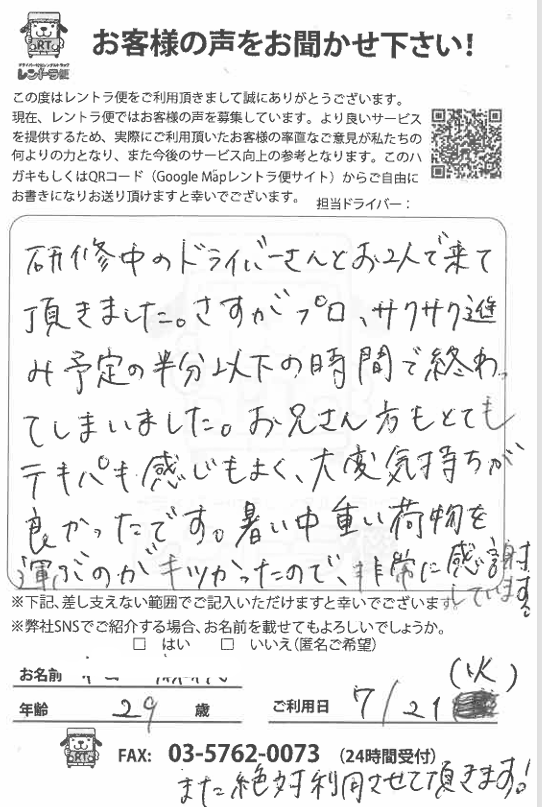 お客様の声をお聞かせ下さい!
RT
ドライバー付きレンタルトラック
レントラ便
この度はレントラ便をご利用頂きまして誠にありがとうございます。
現在、レントラ便ではお客様の声を募集しています。より良いサービス
を提供するため、実際にご利用頂いたお客様の率直なご意見が私たちの
何よりの力となり、また今後のサービス向上の参考となります。このハ
ガキもしくはQRコード（Google Mapレントラ便サイト）からご自由に
お書きになりお送り頂けますと幸いでございます。
担当ドライバー：
研修中のドライバーさんとお2人で来て
頂きました。さすがプロ、サクサク進
み予定の半分以下の時間で終わっ
てしまいました。お兄さん方もとても
テキパキ感じもよく、大変気持ちが
良かったです。暑い中重い荷物を
運ぶのがキツかったので、非常に感謝
しています。
※下記、差し支えない範囲でご記入いただけますと幸いでございます。
※弊社SNSでご紹介する場合、お名前を載せてもよろしいでしょうか。
□ はい □ いいえ(匿名ご希望)
お名前
年齢 29 歳
ご利用日 7/21 (火)
RT
FAX: 03-5762-0073 （24時間受付）
また絶対利用させて頂きます!